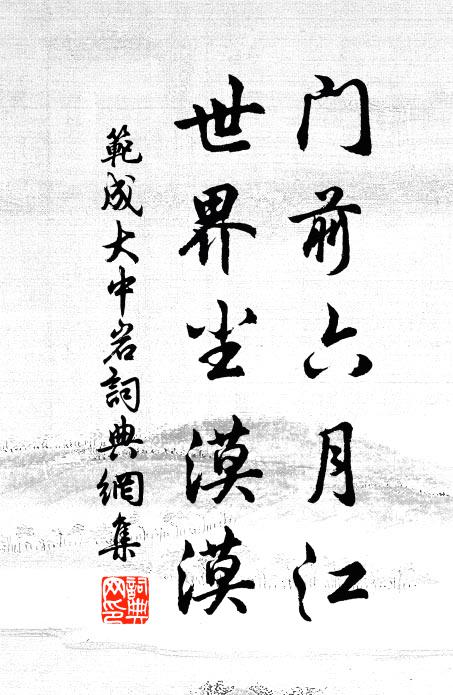 门前六月江
世界尘漠漠
範成大中岩詞典網集
詞典
网印